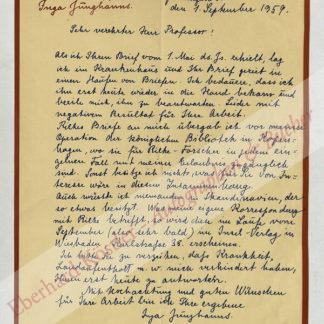 Inga Junghanns.
den 7. September 1959.
Sehr verehrter Herr Professor!
Als ich Ihren Brief vom 1. Mai ds. Js. erhielt, lag
ich im Krankenhaus und Ihr Brief geriet in
einen Haufen von Briefen. Ich bedauere, dass ich
ihn erst heute wieder in die Hand bekam und
beeile mich, ihn zu beantworten. Leider mit
negativem Resultat für Ihre Arbeit.
Rilkes Briefe an mich übergab ich vor meiner
Operation der Königlichen Bibliothek in Kopen-
hagen, wo sie für Rilke-Forscher in jedem ein-
zelnen Fall mit meiner Erlaubnis zugänglich
sind. Sonst besitze ich nichts, was für Sie von In-
teresse wäre in diesem Zusammenhang.
Auch wüsste ich niemanden in Skandinavien, der
so etwas besitzt. Was meine eigene Korrespondenz
mit Rilke betrifft, so wird dies im Laufe vom
September (also sehr bald) im Insel-Verlag in
Wiesbaden 38. erscheinen.
Ich bitte Sie zu verzeihen, daß Krankheit,
Landaufenthalt u. w. mich verhindert haben,
Ihnen erst heute zu antworten.
Mit Hochachtung und guten Wünschen
für Ihre Arbeit bin ich Ihre ergebene
Inga Junghanns.
Eberhard Köstler Autographen & Bücher